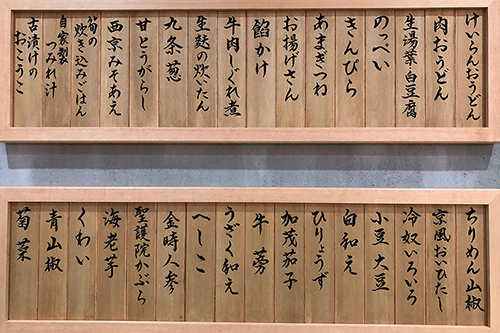 けいらんおうどん
肉おうどん
生湯葉白豆腐
のっぺい
きんぴら
あまぎつね
お揚げさん
餡かけ
牛肉しぐれ煮
生麩の炊いたん
九条葱
甘とうがらし
西京みそあえ
筍の
炊き込みごはん
自家製
つみれ汁
古漬けの
おこうこ
ちりめん山椒
京風おひたし
冷奴いろいろ
小豆大豆
白和え
ひりょうず
加茂茄子
牛蒡
うざく和え
へしこ
金時人参
聖護院かぶら
海老芋
くわい
青山椒
菊菜